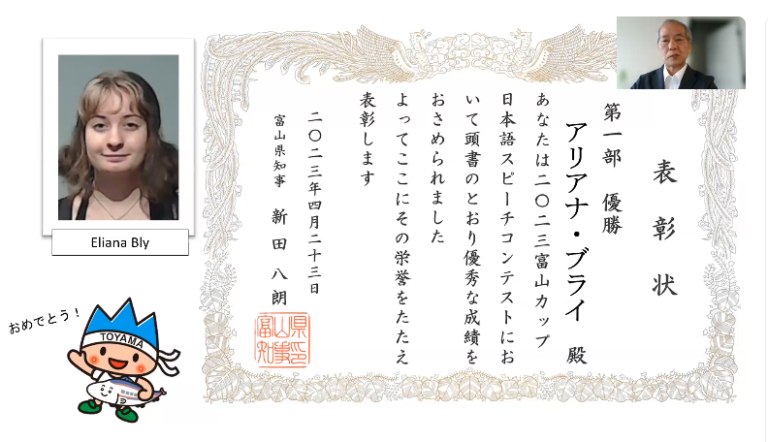 Eliana Bly
おめでとう！
TOYAMA
表彰状
第一部 優勝
アリアナ・ブライ 殿
あなたは二〇二三富山カップ
日本語スピーチコンテストにお
いて頭書のとおり優秀な成績を
おさめられました
よってここにその栄誉をたたえ
表彰します
二〇二三年四月二十三日
富山県知事 新田 八朗
富山県
知事印